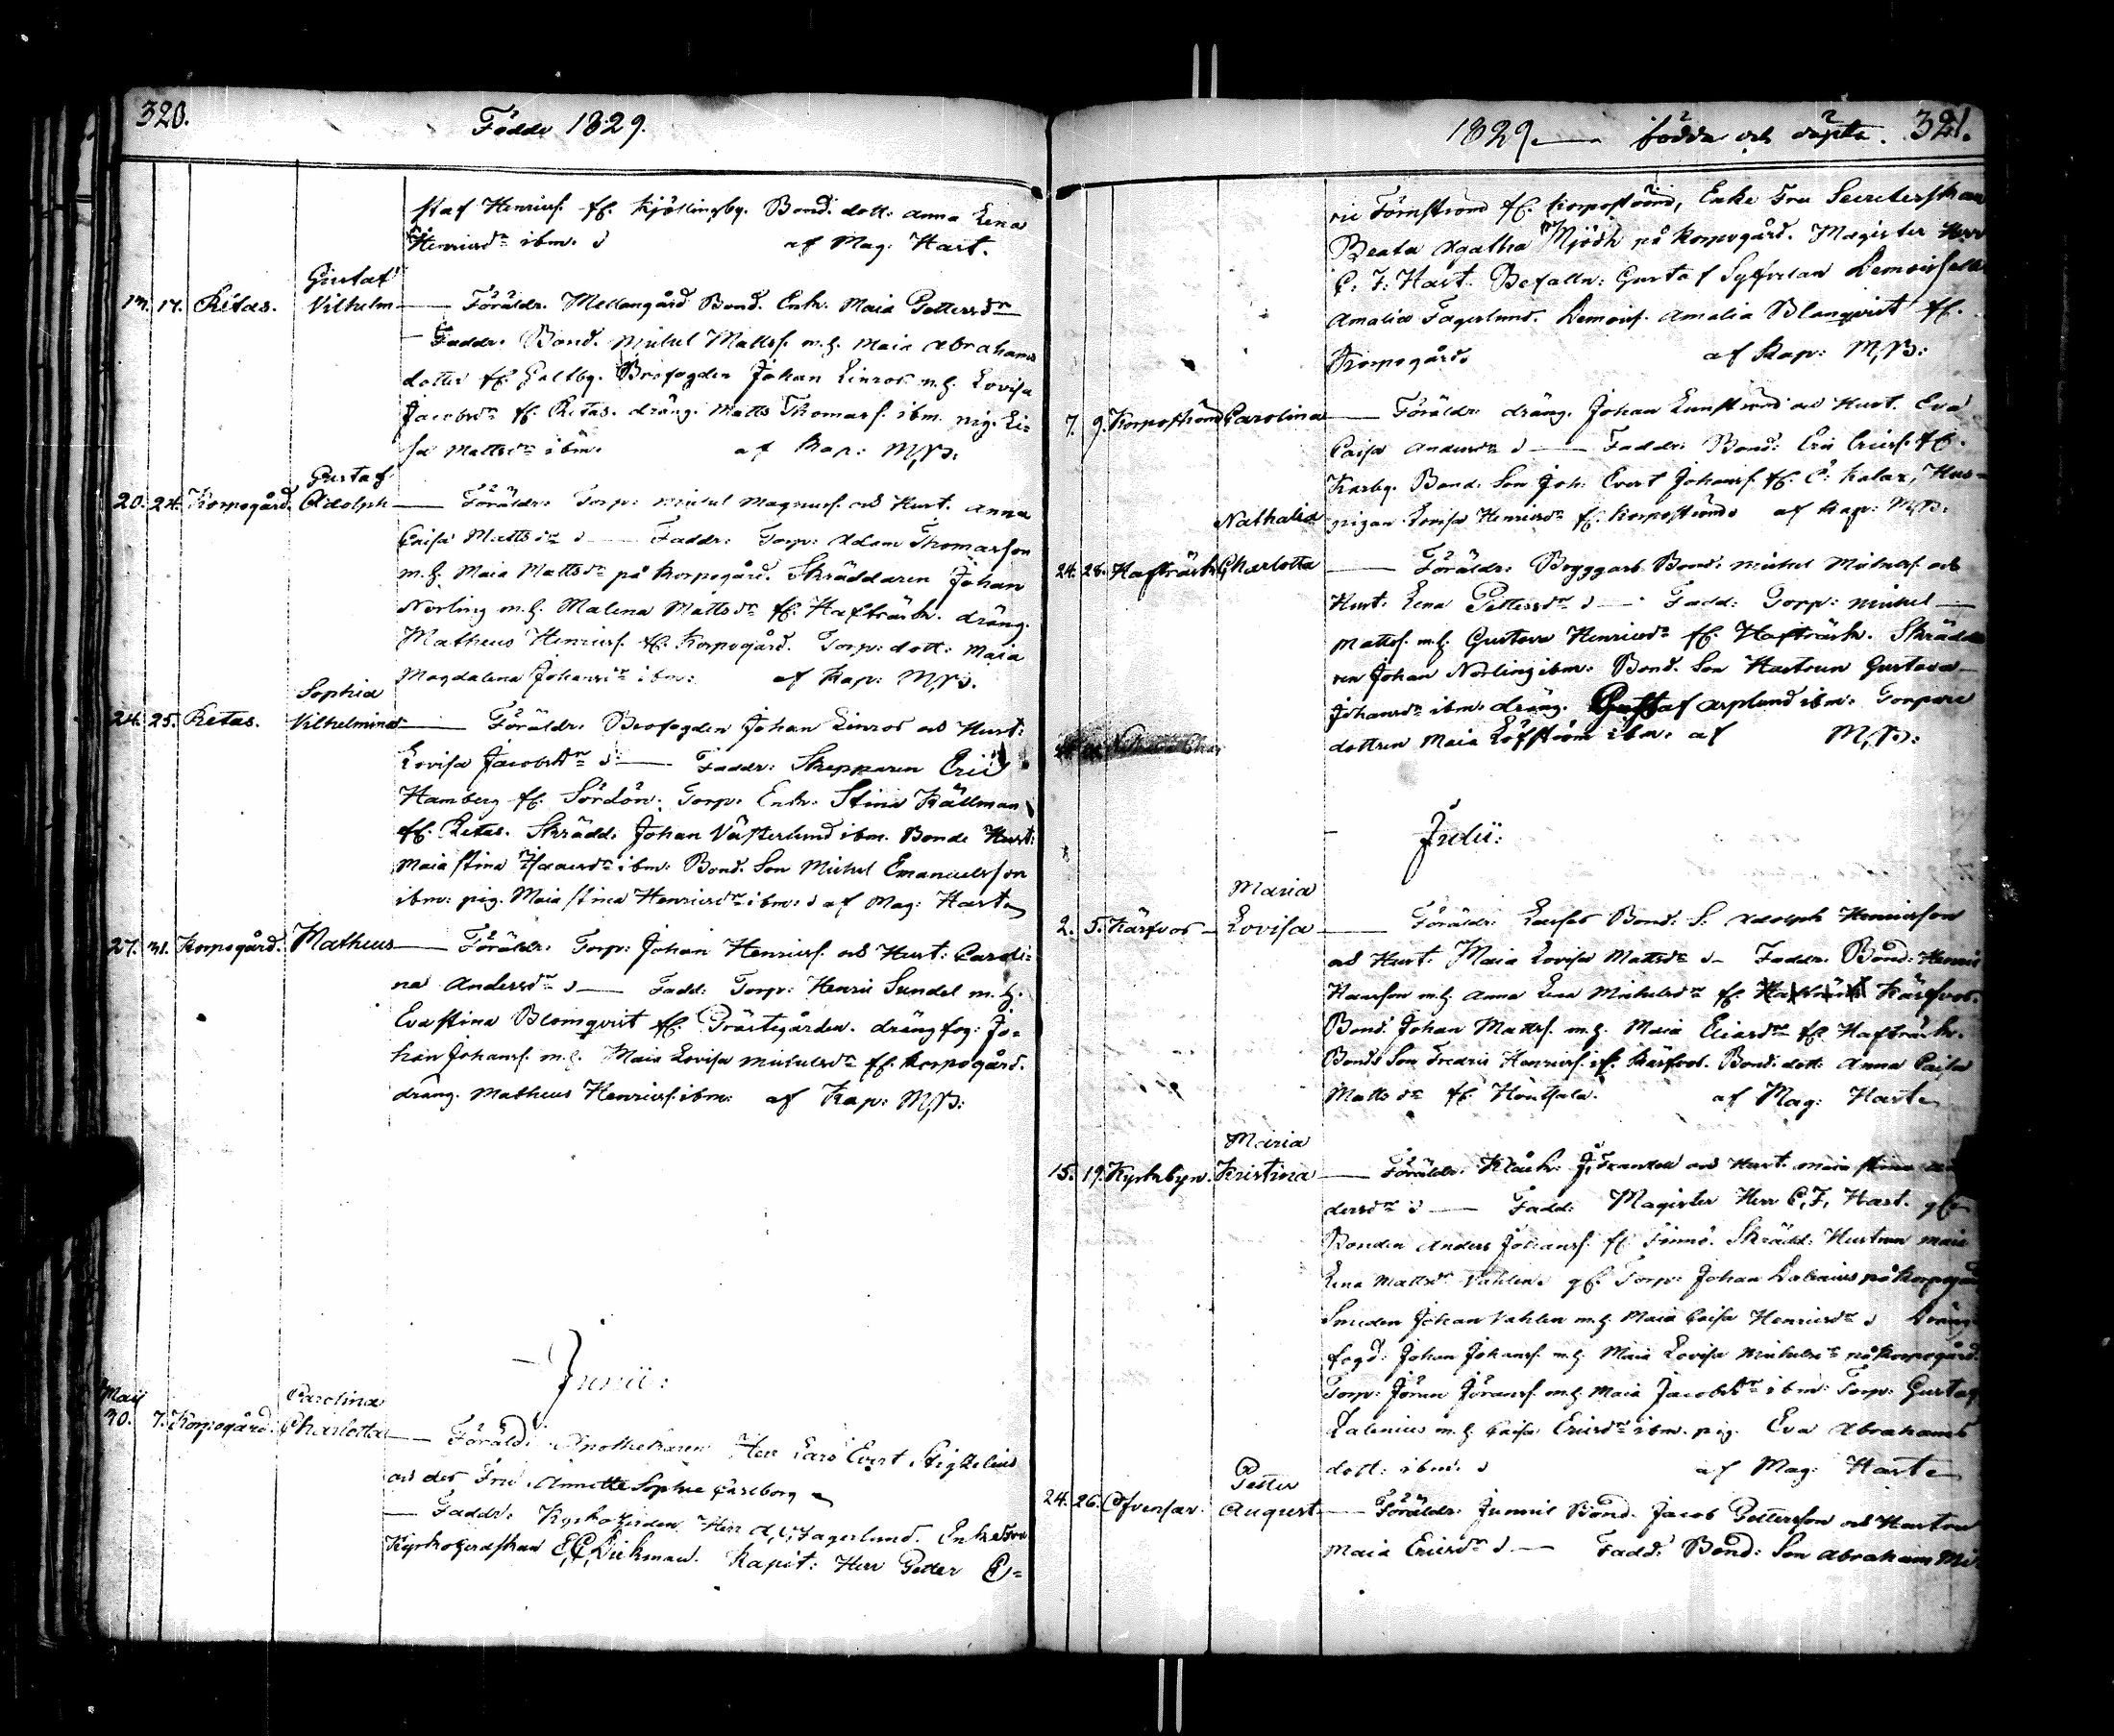 320.
Födde 1829.
staf Henricss. fr. Kjöllingsby. Bond. dott. Anna Lena
Henricsdr ibm. af Mag: Hart.
Gustaf
17. Retas. Vilhelm — Föräldr. Mellangård Bond. Enk. Maia Pettersdr
— Faddr. Bond. Michel Mattss. m.h. Maia Abrahams
dotter fr. Galtby. Brofogden Johan Linros m.h. Lovisa
Jacobsdr fr. Retas. dräng. Matts Thomass. ibm. pig. Li-
sa Mattsdr ibm. af Kap: M,B:
Gustaf
20. 24. Korpogård. Adolph — Föräldr. Torp: Michel Magnuss. och Hust. Anna
Caisa Mattsdr — Faddr: Torp: Adam Thomasson
m.h. Maia Mattsdr på Korpogård. Skräddaren Johan
Norling m.h. Malena Mattsdr fr. Hafträsk. dräng.
Matheus Henricss. fr. Korpogård. Torp: dott: Maia
Magdalena Johansdr ibm: af Kap: M,B.
Sophia
24. 25. Retas. Vilhelmina — Föräldr. Brofogden Johan Linros och Hust:
Lovisa Jacobsdr — Faddr: Skepparen Eric
Hamberg fr. Sördön. Torp: Enk. Stina Källman
fr. Retas. Skrädd. Johan Västerlund ibm. Bonde Hust:
Maia Stina Isaacsdr ibm: Bond. Son Michel Emanuelsson
ibm: pig. Maia Stina Henricsdr ibm: af Mag: Hart
27. 31. Korpogård. Matheus — Föräldr. Torp: Johan Henricss. och Hust: Caroli-
na Andersdr — Fadd: Torp: Henric Sundel m.h.
Eva Stina Blomqvist fr. Prästegården. drängfog: Jo-
han Johanss. m.h. Maia Lovisa Michelsdr fr. Korpogård.
dräng. Matheus Henricss. ibm: af Kap: M,B:
Junii:
Maij Carolina
30. 7. Korpogård. Charlotta — Föräld: Apothekaren Herr Lars Evert Stigzelius
och des Fru Annette Sophie Carlborg
— Faddr. Kyrkoherden Herr Fagerlund. Enkefru
Kyrkoherdskan E,C, Dickman. Kapit: Herr Peter C-
1829 — födda och döpta. 321.
ric Törnström fr. Korpoström, Enke Fru Secreterskan
Beata Agatha Mjödh på Korpogård. Magister Herr
C. F. Hart. Befalln: Gustaf Demoiselle
Amalia Fagerlund. Demois. Amalia Blomqvist fr.
Korpogård. af Kap: M,B:
7. 9. Korpoström Carolina — Föräldr: dräng. Johan Lunström och Hust. Eva
Caisa Andersdr — Faddr: Bond: Eric Ericss. fr.
Karby. Bond: Son Joh: Evert Johanss. fr. Ö. Kalax, Hus-
pigan Lovisa Henricsdr fr. Korpoström. af Kap: M,B:
Nathalia
24. 28. Hafträsk, Charlotta — Föräldr: Bryggars Bond: Michel Michelss. och
Hust. Lena Pettersdr — Fadd: Torp: Michel
Mattss. m.h. Gustava Henricsdr fr. Hafträsk. Skrädda
ren Johan Norling ibm: Bond. Son Hustrun Gustava
Johansdr ibm: dräng. Gustaf Asplund ibm: Torpare
dottren Maia Löfström ibm: af M,B:
Julii:
Maria
2. 5. Kärfvos — Lovisa — Föräldr: Larsas Bond: S. Adolph Henricsson
och Hust. Maia Lovisa Mattsdr — Faddr. Bond: Henric
Hansson m.h. Anna Lena Michelsdr fr. Kärfvos.
Bond. Johan Mattss. m.h. Maia Eliasdr fr. Hafträsk.
Bonde Son Fredric Henricss. fr. Kärfvos. Bond. dott: Anna Caisa
Mattsdr fr. Houtsala. af Mag: Hart
Maria
15. 19. Kyrkbyn. Kristina — Föräldr. Klock. J, Franzen och Hust. Maia Stina An
dersdr — Fadd: Magister Herr C, F, Hart.
Bonden Anders Johanss. fr. Finnö. Skrädd: Hustrun Maia
Lena Mattsdr Vahlen. Torp: Johan på Korpogård
Smeden Johan Vahlen m.h. Maia Caisa Henricsdr Dräng
fogd: Johan Johanss. m.h. Maia Lovisa Michelsdr på Korpogård.
Torp: Jöran Jöranss. m.h. Maia Jacobsdr ibm: Torp: Gustaf
m.h. Caisa Ericsdr ibm. pig. Eva Abrahams
dott: ibm. af Mag: Hart
Petter
24. 26. Ofvensar. August — Föräldr: Bond. Jacob Pettersson och Hustru
Maia Ericsdr — Fadd: Bond: Son Abraham Mi